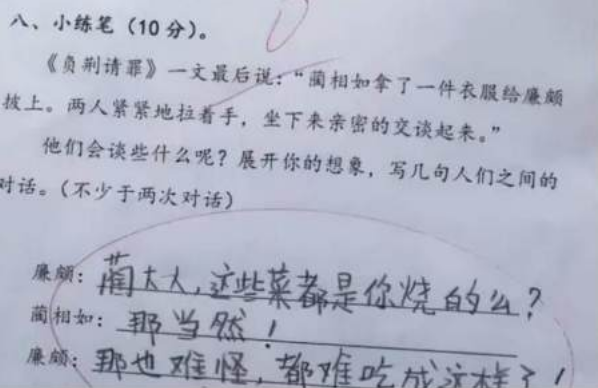 八、小练笔（10分）。
《负荆请罪》一文最后说：“蔺相如拿了一件衣服给廉颇
披上。两人紧紧地拉着手，坐下来亲密的交谈起来。”
他们会谈些什么呢？展开你的想象，写几句人们之间的
对话。（不少于两次对话）
廉颇：蔺大人，这些菜都是你烧的么？
蔺相如：那当然！
廉颇：那也难怪，都难吃成这样了！